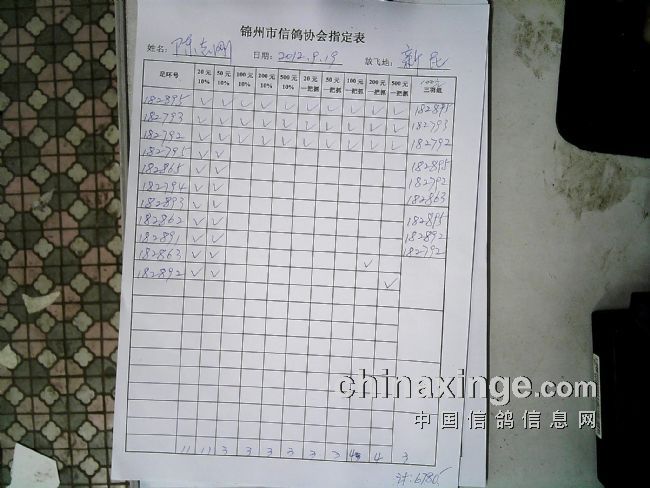 锦州市信鸽协会指定表
姓名: 陈志刚 日期: 2012.9.19 放飞地: 新民
足环号 20元10% 50元10% 100元10% 200元10% 500元10% 20元一把抓 50元一把抓 100元一把抓 200元一把抓 500元一把抓 100元三羽组
182895 ✓ ✓ ✓ ✓ ✓ ✓ ✓ ✓ ✓ ✓ 182895
182793 ✓ ✓ ✓ ✓ ✓ ✓ ✓ ✓ ✓ ✓ 182793
182792 ✓ ✓ ✓ ✓ ✓ ✓ ✓ ✓ ✓ ✓ 182792
182795 ✓ ✓ 182895
182865 ✓ ✓ 182792
182794 ✓ ✓ 182863
182893 ✓ ✓ 182895
182862 ✓ ✓ 182892
182891 ✓ ✓ 182792
182863 ✓ ✓ ✓
182892 ✓ ✓ ✓
11 11 3 3 3 3 3 3 4 4 3
计: 6780
chinaxinge.com
中国信鸽信息网